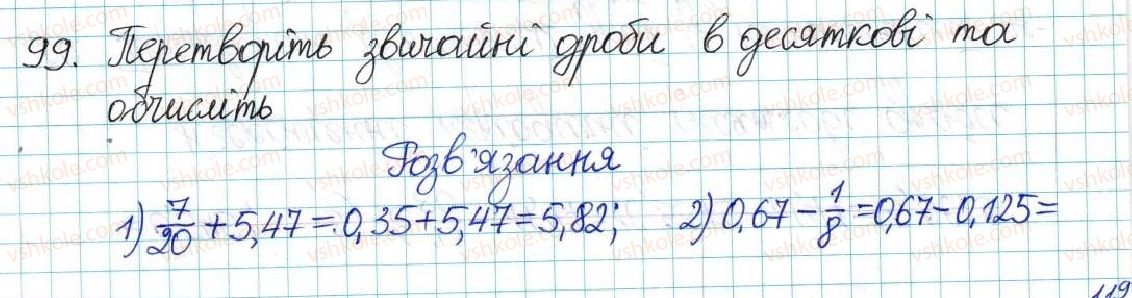 99. Перетворіть звичайні дроби в десяткові та
обчисліть
Розв'язання
1) 7/20 + 5,47 = 0,35 + 5,47 = 5,82; 2) 0,67 - 1/8 = 0,67 - 0,125 =
119